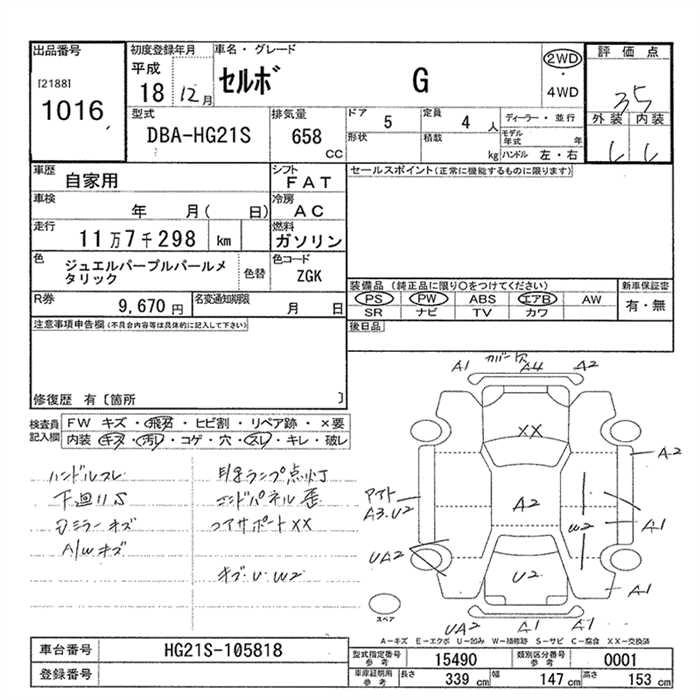 出品番号
[2188]
1016
初度登録年月
平成
18 12月
車名・グレード
セルボ G
2WD
・
4WD
評価点
35
外装 内装
型式
DBA-HG21S
排気量
658
CC
ドア
5
定員
4 人
形状
積載
kg
ディーラー・並行
モデル年式 年
ハンドル 左・右
車歴
自家用
シフト
FAT
車検
年 月( 日)
冷房
AC
走行
11万7千298 km
燃料
ガソリン
色
ジュエルパープルパールメタリック
色替
色コード
ZGK
R券
9,670円
名変通知期限
月 日
セールスポイント(正常に機能するものに限ります)
装備品(純正品に限り○をつけてください)
PS PW ABS エアB AW
SR ナビ TV カワ
新車保証書
有・無
後日品
注意事項申告欄(不具合内容等は具体的に記入して下さい)
修復歴 有〔箇所 〕
検査員記入欄
FW キズ・飛石・ヒビ割・リペア跡・×要
内装 キズ・汚レ・コゲ・穴・スレ・キレ・破レ
ハンドルスレ
下廻りS
Dミラーキズ
A/Wキズ
ランプ点灯
エンドパネル歪
コアサポートXX
キズ・U・W2
A1 カバー欠 A4 A2
XX
A2
A2
A3.U2
W2
A1
UA2
U2
A1
UA2 A1
スペア
A-キズ E-エクボ U-凹み W-補修跡 S-サビ C-腐食 XX-交換済
車台番号
HG21S-105818
登録番号
型式指定番号 参考
15490
類別区分番号 参考
0001
車庫証明用 参考
長さ 339 cm 幅 147 cm 高さ 153 cm